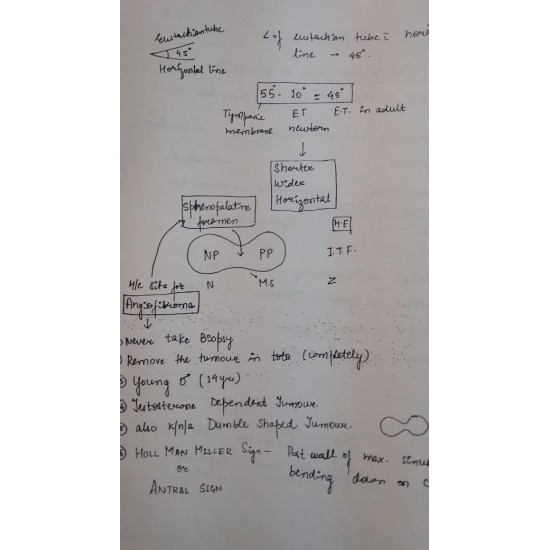 Eustachian tube
45°
Horizontal line
∠ of eustachian tube c̄ hori
line → 45°.
55° - 10° = 45°
Tympanic ET E.T. in adult
membrane newborn
Shorter
Wider
Horizontal
Sphenopalatine
foramen
M.E
NP PP I.T.F.
N MS Z
M/c site for
Angiofibroma
Never take Biopsy
Remove the tumour in toto (completely)
③ Young ♂ (14yrs)
④ Testosterone Dependent Tumour.
⑤ also k/n/a Dumble Shaped Tumour.
⑥ HOLL MAN MILLER Sign - Post wall of max. sinu
or bending down on
ANTRAL SIGN